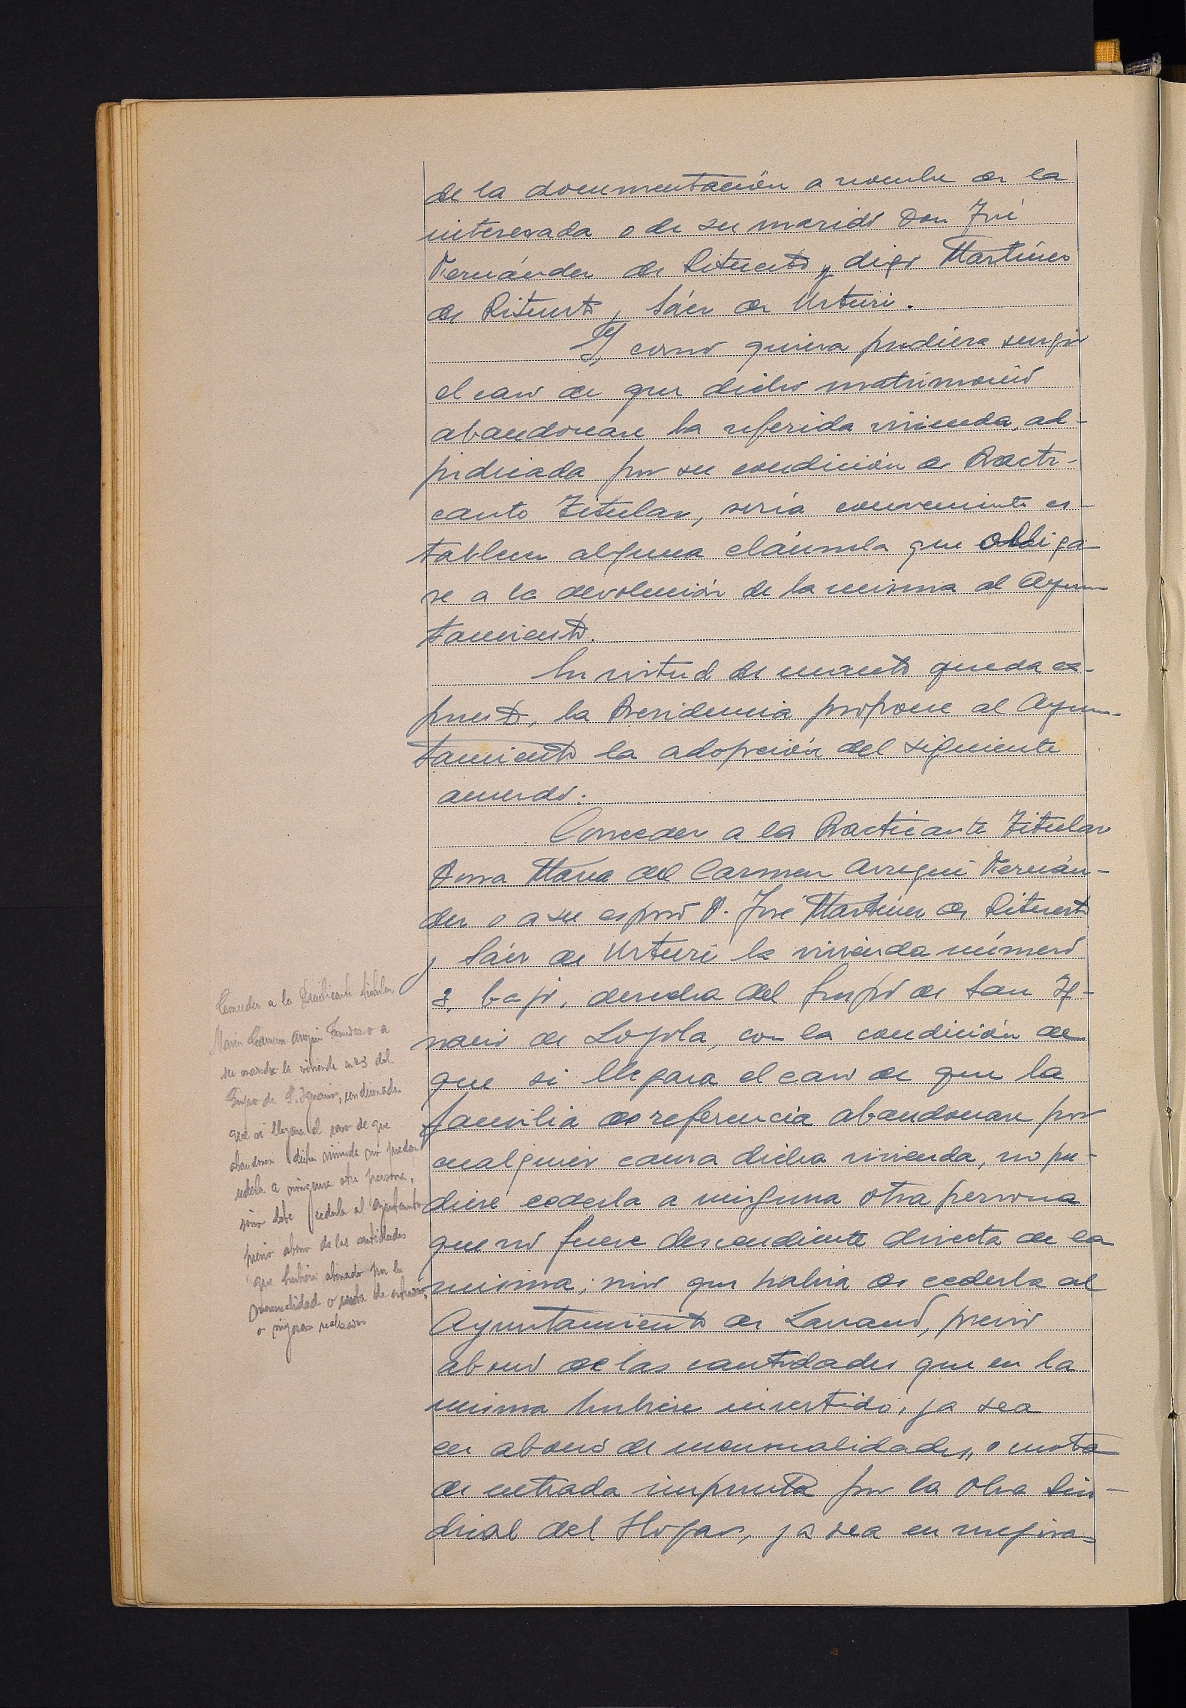 de la documentación a nombre de la
interesada o de su marido Don José
Fernández de Rituerto, digo Martínez
de Rituerto y Sáez de Urturi.
Y, como quiera pudiera surgir
el caso de que dicho matrimonio
abandonase la referida vivienda, ad-
judicada por su condición de Practi-
cante Titular, sería conveniente es-
tablecer alguna cláusula que obliga
se a la devolución de la misma al Ayun
tamiento.
En virtud de cuanto queda ex-
puesto, la Presidencia propone al Ayun-
tamiento la adopción del siguiente
acuerdo.
Conceder a la Practicante Titular
Doña María del Carmen Arregui Fernán-
dez o a su esposo D. Jose Martínez de Rituerto
y Sáez de Urturi la vivienda número
3, bajo, derecha del Grupo de San Ig-
nacio de Loyola, con la condición de
que si llegara el caso de que la
familia de referencia abandonare por
cualquier causa dicha vivienda, no pu-
diese cederla a ninguna otra persona
que no fuese descendiente directa de la
misma, sino que habia de cederla al
Ayuntamiento de Laudio, previo
abono de las cantidades que en la
misma hubiese invertido, ya sea
en abono de mensualidades, o cuota
de entrada impuesta por la Obra Sin-
dical del Hogar, ya sea en mejoras
Conceder a la Practicante titular
Maria Carmen Arregui Fernández o a
su marido la vivienda nº 3 del
Grupo de S. Ignacio, condicionada
que si llegara el caso de que
abandonen dicha vivienda no puedan
cederla a ninguna otra persona,
sino debe cederla al Ayuntamiento
previo abono de las cantidades
que hubiere abonado por la
mensualidad o cuota de entrada,
o mejoras realizadas